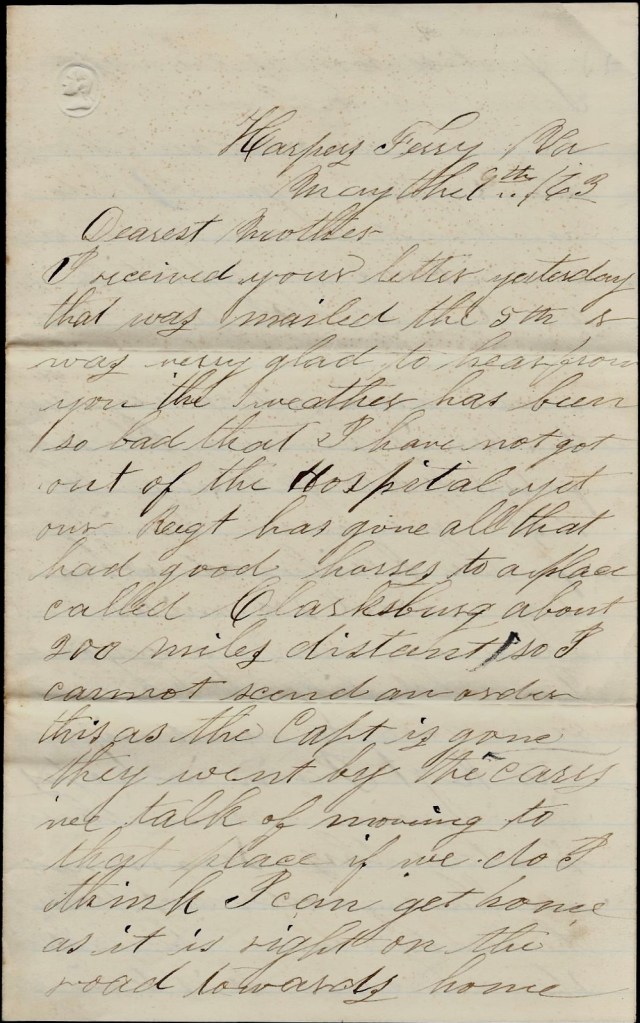 Harpers Ferry Va
May the 9th /63
Dearest Mother
I received your letter yesterday
that was mailed the 5th &
was verry glad to hear from
you the weather has been
so bad that I have not got
out of the Hospital yet
our Regt has gone all that
had good horses to a place
called Clarksburg about
200 miles distant so I
cannot send an order
this as the Capt is gone
they went by the cars
we talk of moving to
that place if we do I
think I can get home
as it is right on the
road towards home